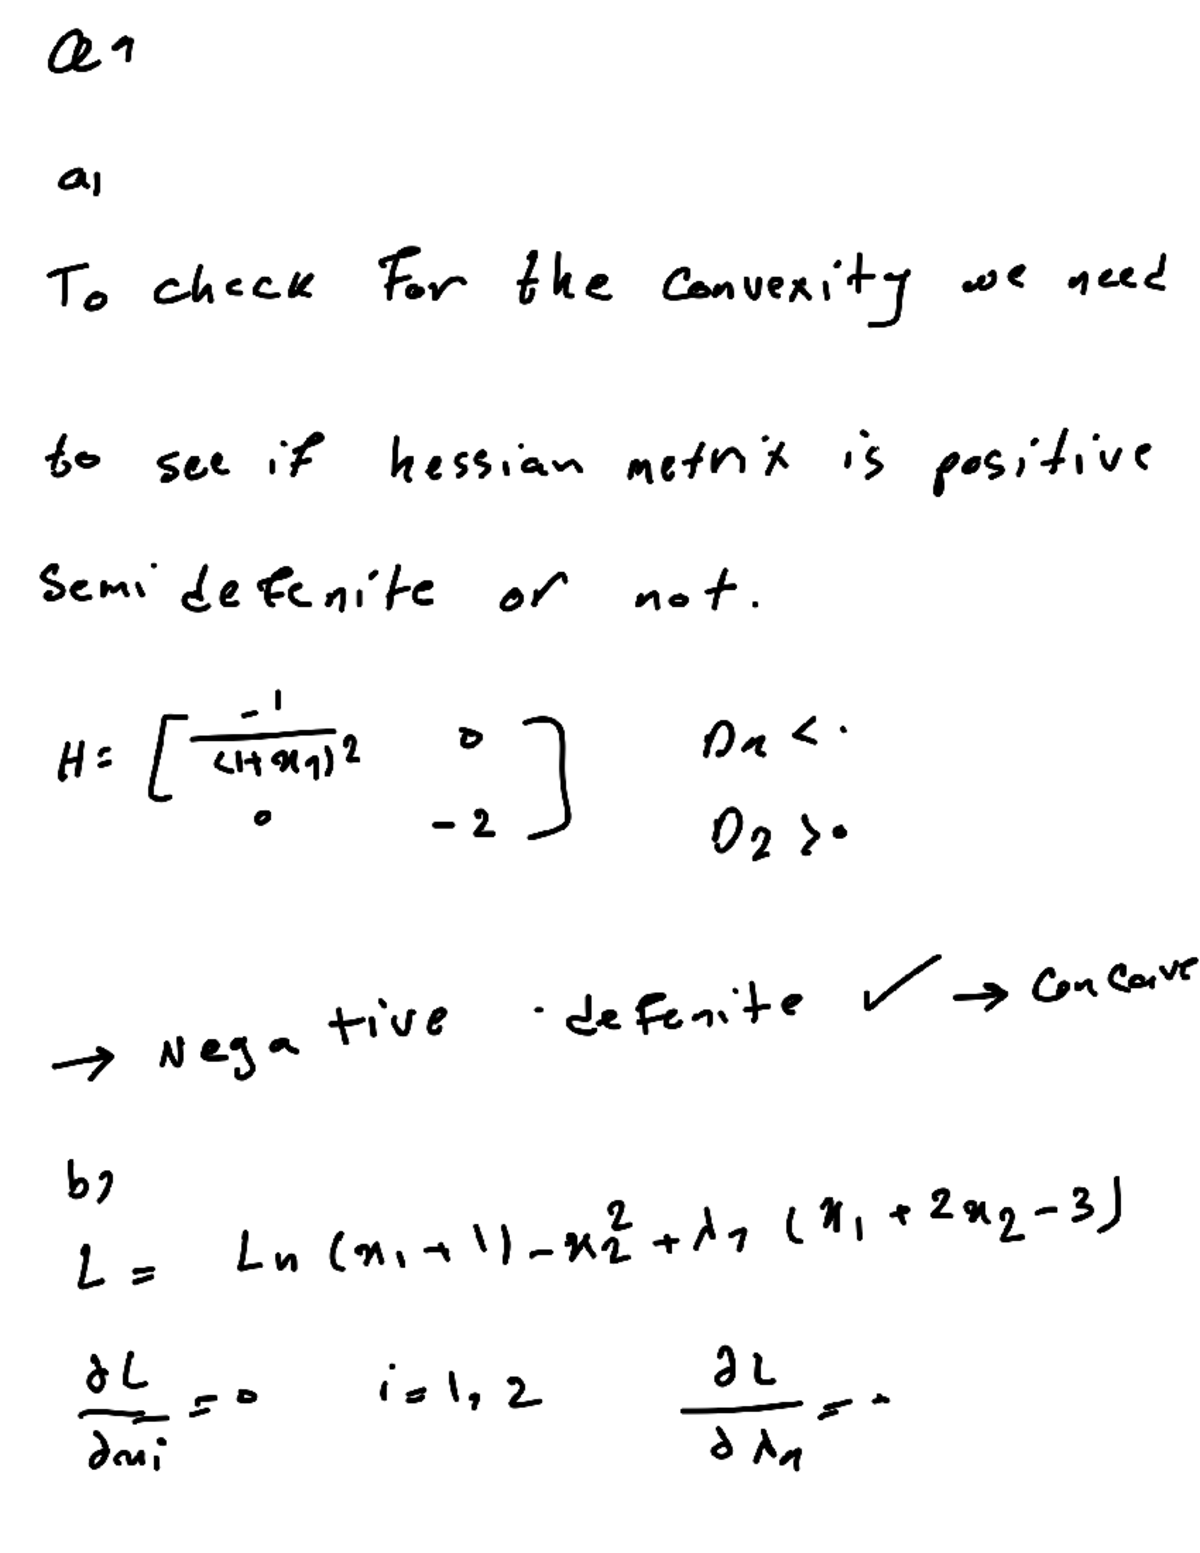 Q1
a)
To check For the Convexity we need
to see if hessian metrix is positive
Semi defenite or not.
H = [ -1/(1+x1)^2 0 D1 < 0
0 -2 ] D2 > 0
→ Negative defenite ✓ → Concave
b)
L = Ln (x1 + 1) - x2^2 + λ1 (x1 + 2x2 - 3)
∂L/∂xi = 0 i = 1, 2 ∂L/∂λ1 = 0